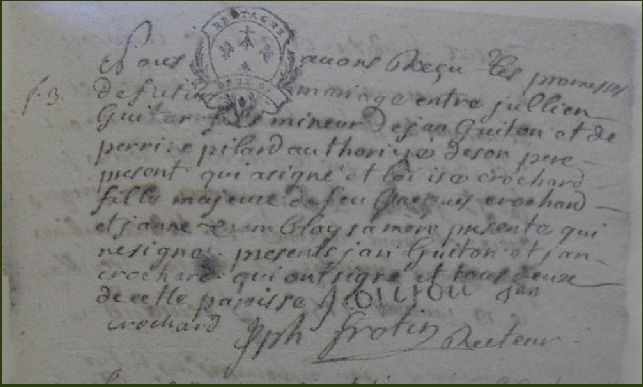 BRETAGNE
DEUX S.
Nous avons Reçu Les promesses
f. 3. de futur mariage entre jullien
Guiton fils mineur de jan Guiton et de
perrine pilard authorizé de son pere
present qui a signé et loisse crochard
fille majeure de feu Jacquis crochard
et janne tremblay sa mere presente qui
ne signe. presents jan Guiton et jan
crochard qui ont signé et tous deux
de cette paroisse J Guiton jan
crochard Jph Frotin Recteur